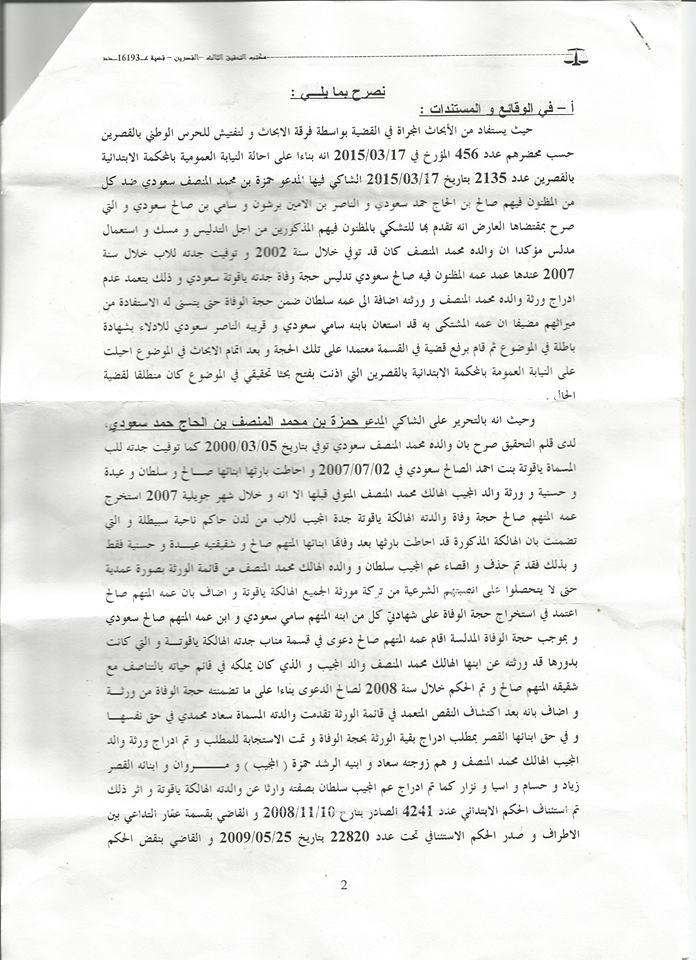 مكتب التحقيق الثالث –القصرين – قضية عـ16193ـدد
نصرح بما يلـــي :
أ – في الوقائع و المستندات :
حيث يستفاد من الأبحاث المجراة في القضية بواسطة فرقة الابحاث و التفتيش للحرس الوطني بالقصرين
حسب محضرهم عدد 456 المؤرخ في 2015/03/17 انه بناءا على احالة النيابة العمومية بالمحكمة الابتدائية
بالقصرين عدد 2135 بتاريخ 2015/03/17 الشاكي فيها المدعو حمزة بن محمد المنصف سعودي ضد كل
من المظنون فيهم صالح بن الحاج حمد سعودي و الناصر بن الامين برشون و سامي بن صالح سعودي و التي
صرح بمقتضاها العارض انه تقدم بها للتشكي بالمظنون فيهم المذكورين من اجل التدليس و مسك و استعمال
مدلس مؤكدا ان والده محمد المنصف كان قد توفي خلال سنة 2002 و توفيت جدته للاب خلال سنة
2007 عندها عمد عمه المظنون فيه صالح سعودي تدليس حجة وفاة جدته ياقوتة سعودي و ذلك بتعمد عدم
ادراج ورثة والده محمد المنصف و ورثته اضافة الى عمه سلطان ضمن حجة الوفاة حتى يتسنى له الاستفادة من
ميراثهم مضيفا ان عمه المشتكى به قد استعان بابنه سامي سعودي و قريبه الناصر سعودي للادلاء بشهادة
باطلة في الموضوع ثم قام برفع قضية في القسمة معتمدا على تلك الحجة و بعد اتمام الابحاث في الموضوع احيلت
على النيابة العمومة بالمحكمة الابتدائية بالقصرين التي اذنت بفتح بحثا تحقيقي في الموضوع كان منطلقا لقضية
الحال .
وحيث انه بالتحرير على الشاكي المدعو حمزة بن محمد المنصف بن الحاج حمد سعودي،
لدى قلم التحقيق صرح بان والده محمد المنصف سعودي توفي بتاريخ 2000/03/05 كما توفيت جدته للب
المسماة ياقوتة بنت احمد الصالح سعودي في 2007/07/02 و احاطت بارثها ابنائها صـــالح و سلطان و عيدة
و حسنية و ورثة والد المجيب الهالك محمد المنصف المتوفي قبلها الا انه و خلال شهر جويلية 2007 استخرج
عمه المتهم صالح حجة وفاة والدته الهالكة ياقوتة جدة المجيب للاب من لدن حاكم ناحية سبيطلة و التي
تضمنت بان الهالكة المذكورة قد احاطت بارثها بعد وفاتها ابنائها المتهم صالح و شقيقتيه عيـــدة و حسنية فقط
و بذلك فقد تم حذف و اقصاء عم المجيب سلطان و والده الهالك محمد المنصف من قائمة الورثة بصورة عمدية
حتى لا يتحصلوا على انصبتهم الشرعية من تركة مورثة الجميع الهالكة ياقوتة و اضاف بان عمه المتهم صالح
اعتمد في استخراج حجة الوفاة على شهادتي كل من ابنه المتهم سامي سعودي و ابن عمه المتهم صالح سعودي
و بموجب حجة الوفاة المدلسة اقام عمه المتهم صالح دعوى في قسمة مناب جدته الهالكة ياقوتـــة و التي كانت
بدورها قد ورثته عن ابنها الهالك محمد المنصف والد المجيب و الذي كان يملكه في قائم حياته بالتناصف مع
شقيقه المتهم صالح و تم الحكم خلال سنة 2008 لصالح الدعوى بناءا على ما تضمنته حجة الوفاة من ورثـــة
و اضاف بانه بعد اكتشاف النقص المتعمد في قائمة الورثة تقدمت والدته المسماة سعاد محمدي في حق نفسهـا
و في حق ابنائها القصر بمطلب ادراج بقية الورثة بحجة الوفاة و تمت الاستجابة للمطلب و تم ادراج ورثة والد
المجيب الهالك محمد المنصف و هم زوجته سعاد و ابنيه الرشد حمزة ( المجيب ) و مـــروان و ابنائه القصر
زياد و حسام و اسيا و نزار كما تم ادراج عم المجيب سلطان بصفته وارثا عن والدته الهالكة ياقوتة و اثر ذلك
تم استئناف الحكم الابتدائي عدد 4241 الصادر بتارخ 2008/11/10 و القاضي بقسمة عقار التداعي بين
الاطراف و صدر الحكم الاستئنافي تحت عدد 22820 بتاريخ 2009/05/25 و القاضي بنقض الحكم
2